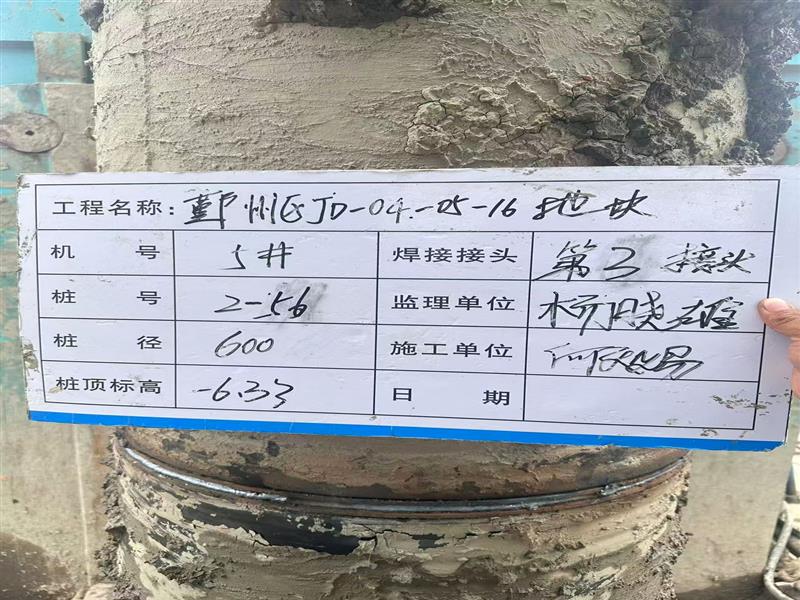 工程名称：鄞州区JD-04-05-16地块
机号 5# 焊接接头 第3接头
桩号 2-56 监理单位 杨晓雄
桩径 600 施工单位
桩顶标高 -6.33 日期